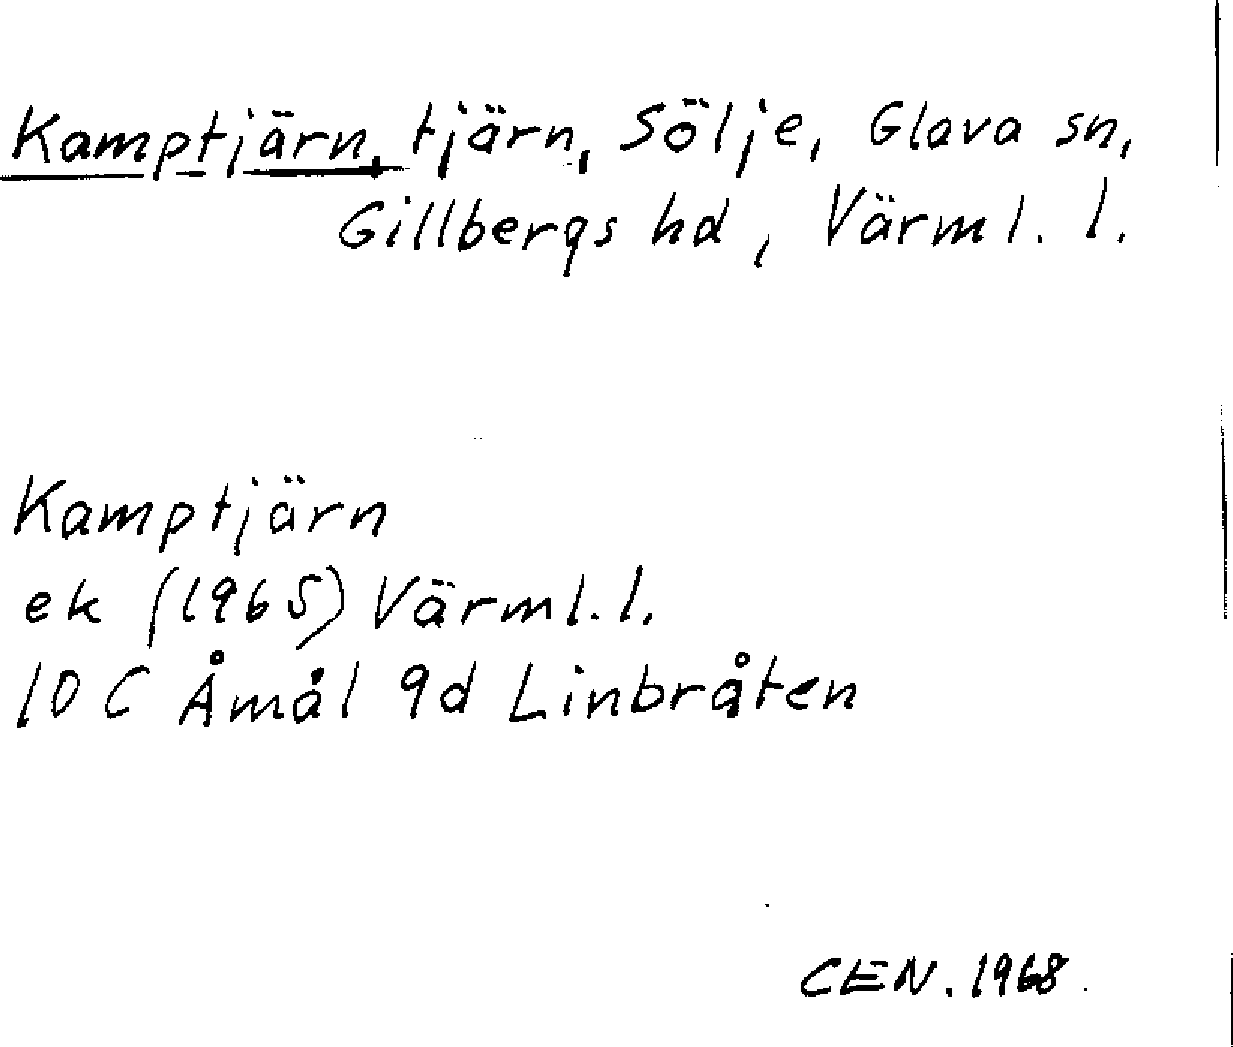 Kamptjärn, tjärn, Sölje, Glava sn,
Gillbergs hd, Värml. l.
Kamptjärn
ek (1965) Värml. l.
10 C Åmål 9d Linbråten
CEN. 1968.